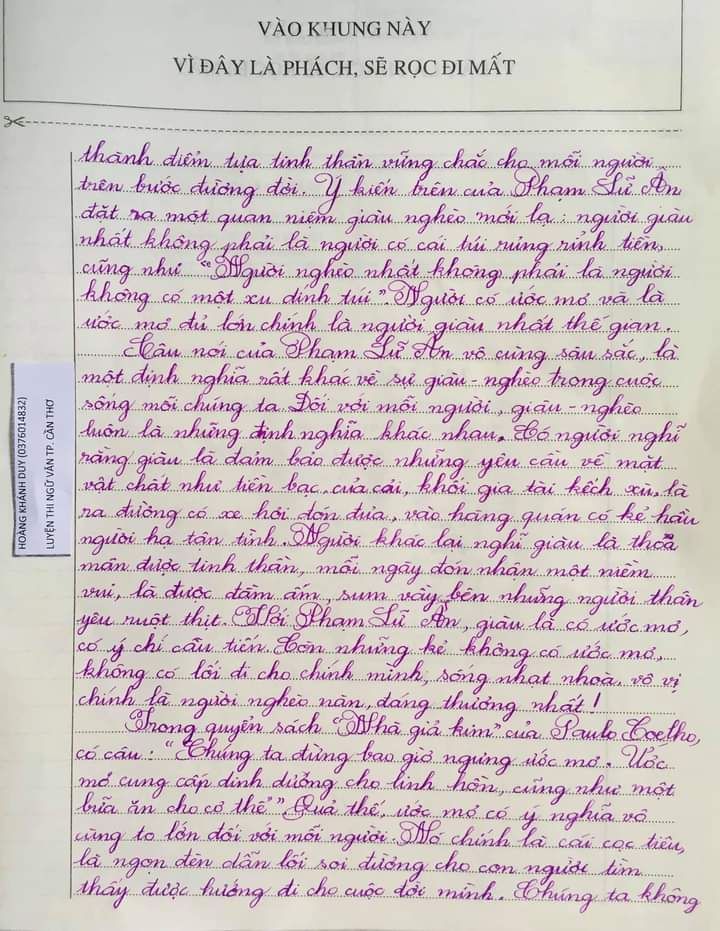 VÀO KHUNG NÀY
VÌ ĐÂY LÀ PHÁCH, SẼ RỌC ĐI MẤT
thành điểm tựa tinh thần vững chắc cho mỗi người
trên bước đường đời. Ý kiến trên của Phạm Lữ Ân
đặt ra một quan niệm giàu nghèo mới lạ: người giàu
nhất không phải là người có cái túi rủng rỉnh tiền,
cũng như "Người nghèo nhất không phải là người
không có một xu dính túi". Người có ước mơ và là
ước mơ đủ lớn chính là người giàu nhất thế gian.
Câu nói của Phạm Lữ Ân vô cùng sâu sắc, là
một định nghĩa rất khác về sự giàu - nghèo trong cuộc
sống mỗi chúng ta. Đối với mỗi người, giàu - nghèo
luôn là những định nghĩa khác nhau. Có người nghĩ
rằng giàu là đảm bảo được những yêu cầu về mặt
vật chất như tiền bạc, của cải, khối gia tài kếch xù, là
ra đường có xe hơi đón đưa, vào hàng quán có kẻ hầu
người hạ tận tình. Người khác lại nghĩ giàu là thoả
mãn được tinh thần, mỗi ngày đón nhận một niềm
vui, là được đầm ấm, sum vầy bên những người thân
yêu ruột thịt. Với Phạm Lữ Ân, giàu là có ước mơ,
có ý chí cầu tiến. Còn những kẻ không có ước mơ,
không có lối đi cho chính mình, sống nhạt nhoà, vô vị
chính là người nghèo nàn, đáng thương nhất!
Trong quyển sách "Nhà giả kim" của Paulo Coelho,
có câu: "Chúng ta đừng bao giờ ngưng ước mơ. Ước
mơ cung cấp dinh dưỡng cho linh hồn, cũng như một
bữa ăn cho cơ thể". Quả thế, ước mơ có ý nghĩa vô
cùng to lớn đối với mỗi người. Nó chính là cái cọc tiêu,
là ngọn đèn dẫn lối soi đường cho con người tìm
thấy được hướng đi cho cuộc đời mình. Chúng ta không
HOÀNG KHÁNH DUY (0376014832)
LUYỆN THI NGỮ VĂN TP. CẦN THƠ